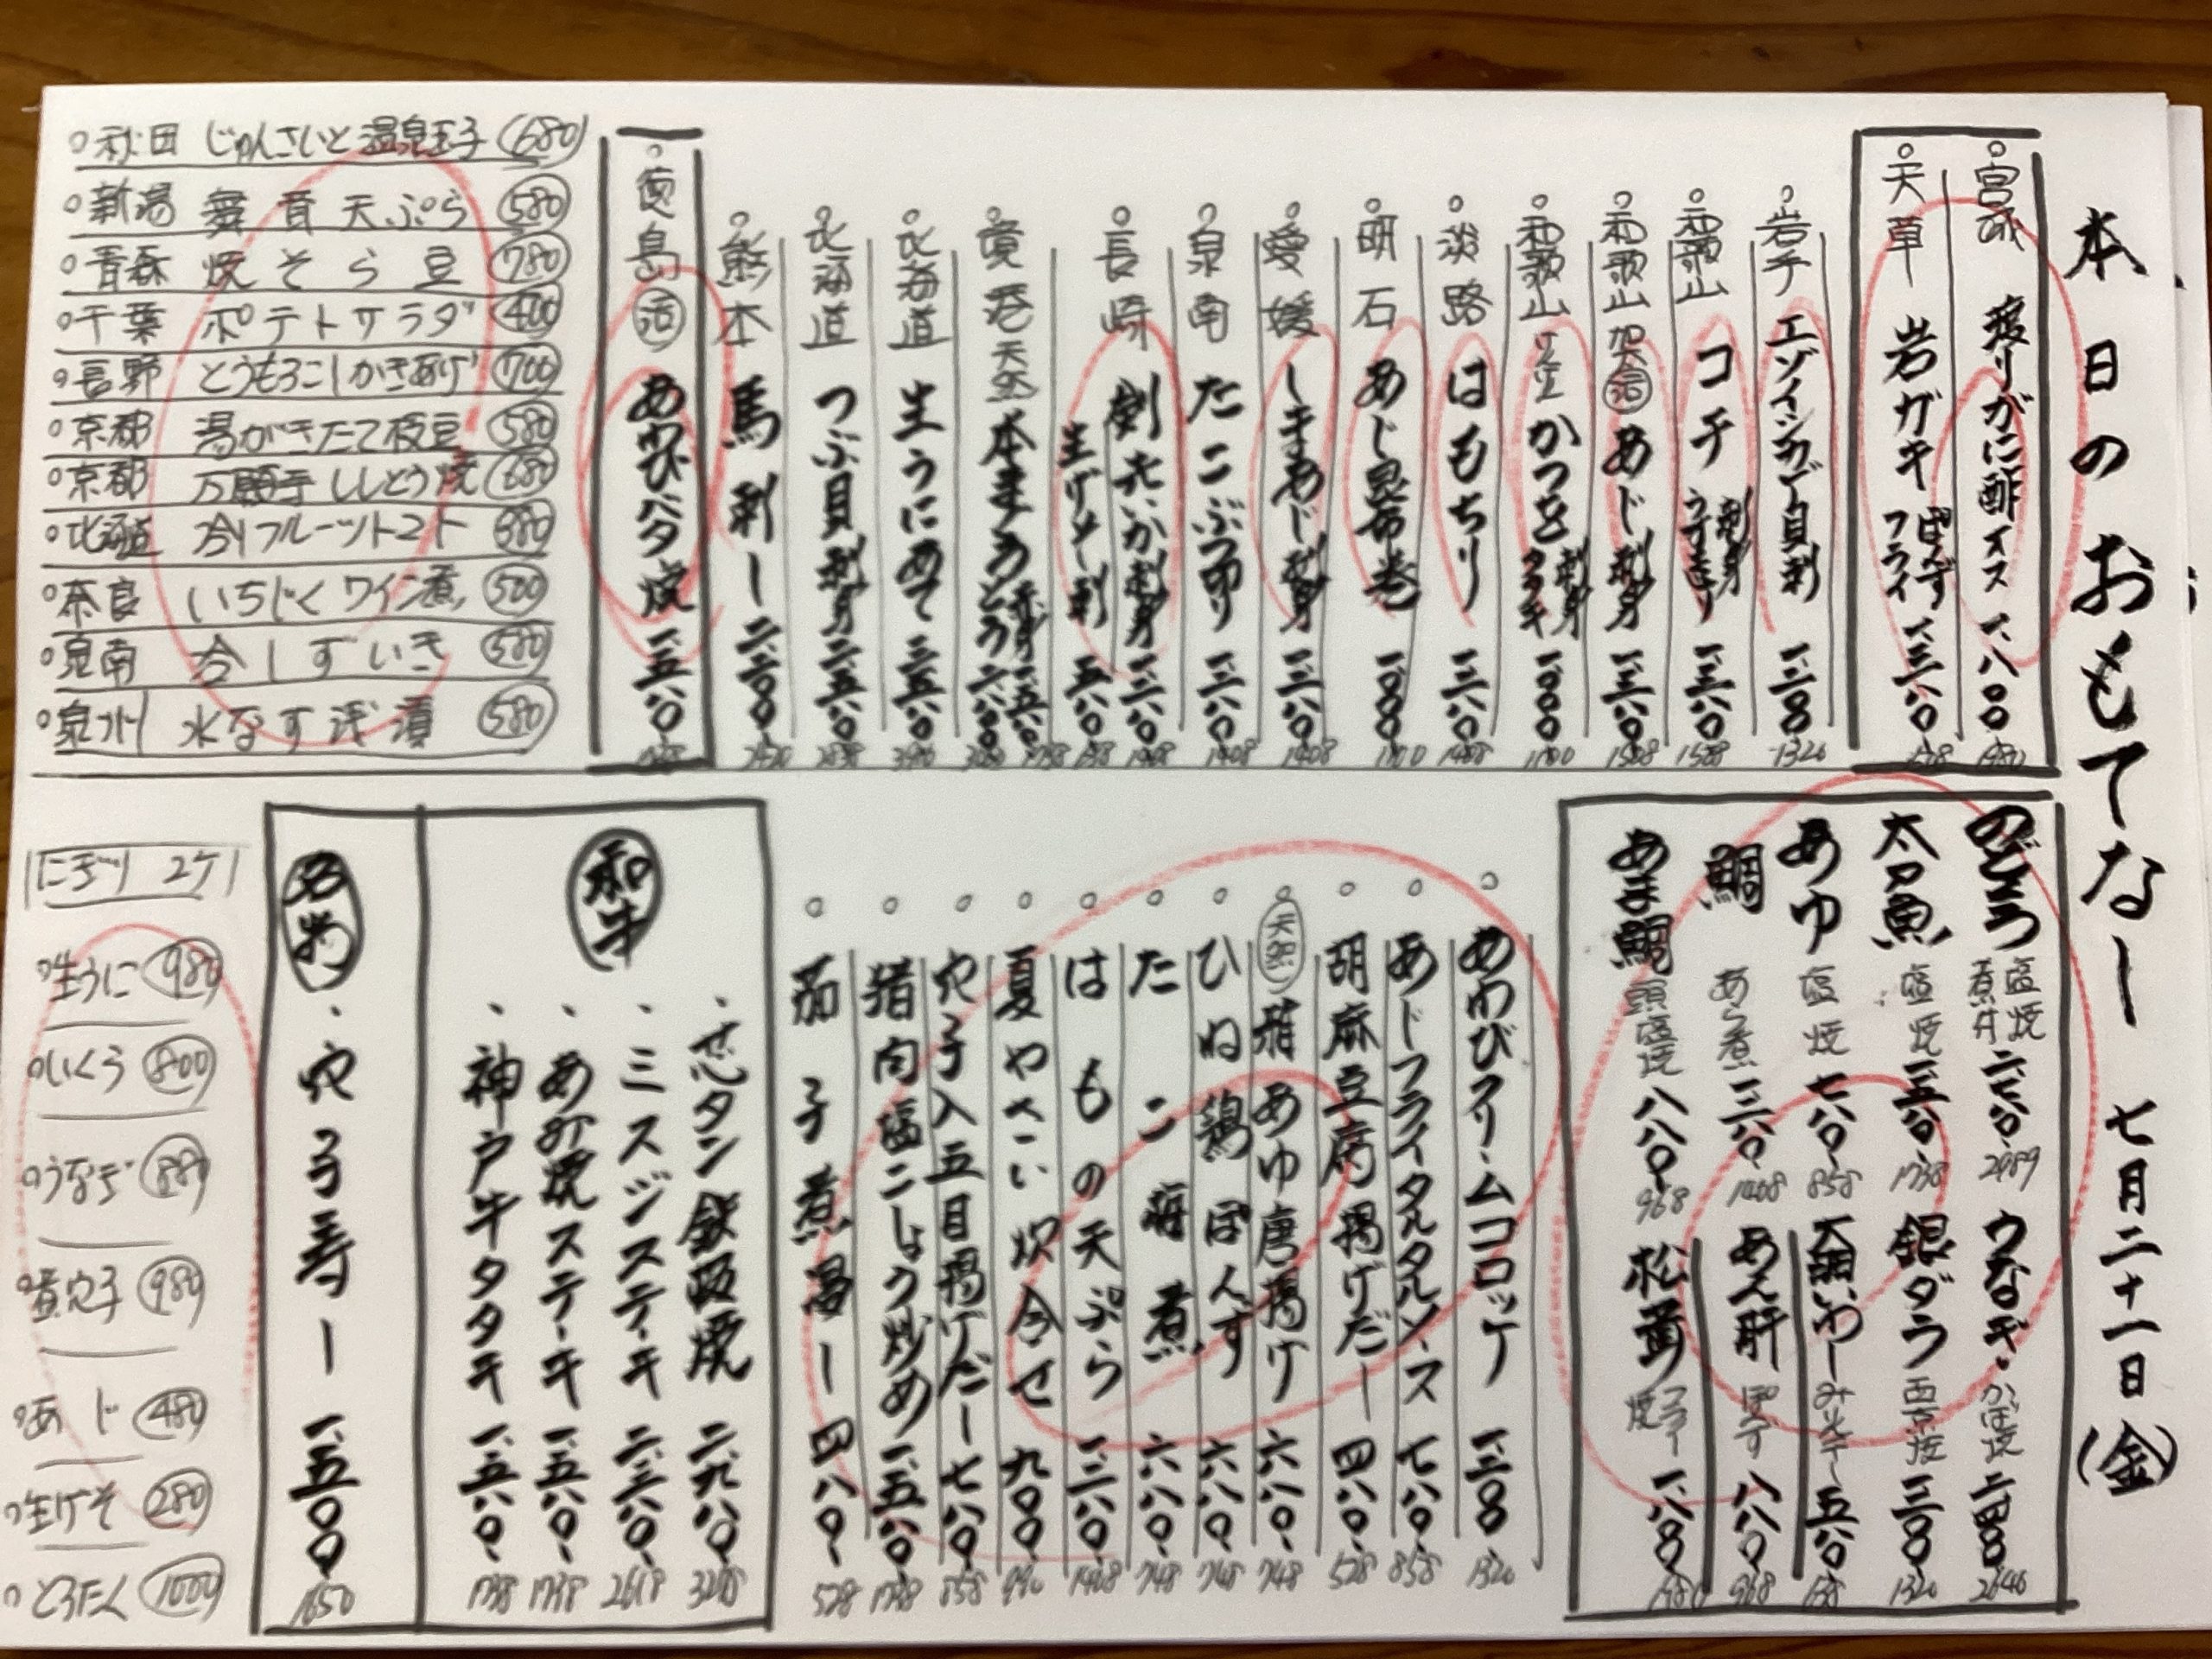 本日のおもてなし 七月二十一日(金)
宮城 渡りがに酢 オス 一、八〇〇 1980
天草 岩ガキ ぽんず フライ 一、三八〇
岩手 エゾイシカゲ貝刺 一、二〇〇 1320
和歌山 コチ 刺身 うす造り 一、三八〇
和歌山 加太 活 あじ刺身 一、三八〇
和歌山 かつを 刺身 タタキ 一、〇〇〇 1100
淡路 はもちり 一、二八〇 1408
明石 あじ昆布巻 一、〇〇〇 1100
愛媛 しまあじ刺身 一、二八〇 1408
泉南 たこぶつ切り 一、二八〇 1408
長崎 剣先いか刺身 一、二八〇 1408
生げそ刺 五八〇
境港 天然 本まぐろ 赤身 とろ
北海道 生うにあて
北海道 つぶ貝刺身 二、五八〇 2838
熊本 馬刺し 二、二〇〇
徳島 活 あわびバタ焼 一、五八〇
秋田 じゅんさいと温泉玉子 680
新潟 舞茸天ぷら 580
青森 焼そら豆 780
千葉 ポテトサラダ 400
長野 とうもろこしかきあげ 700
京都 湯がきたて枝豆 580
京都 万願寺ししとう焼 680
北海道 冷しフルーツトマト 380
奈良 いちじくワイン煮 500
泉南 冷しずいき 580
泉州 水なす浅漬 580
のどぐろ 塩焼 煮付
太刀魚 塩焼 一、五八〇 1738
あゆ 塩焼 七八〇 858
鯛 あら煮 一、二八〇 1408
あま鯛 頭塩焼 八八〇 968
うなぎ かば焼 二、四〇〇 2640
銀ダラ 西京焼 一、二〇〇 1320
大羽いわし 五八〇
あん肝 ぽんず 八八〇 968
松茸 フライ 焼 一、八〇〇 1980
あわびクリームコロッケ 一、二〇〇 1320
あじフライタルタルソース 七八〇 858
胡麻豆腐揚げだし 四八〇 528
天然 稚あゆ唐揚げ 六八〇 748
ひね鶏ぽんず 六八〇 748
たこ 煮 六八〇 748
はもの天ぷら 一、二八〇 1408
夏やさい炊合せ 九〇〇 990
穴子入五目揚げだし 七八〇 858
猪肉塩こしょう炒め 一、五八〇 1738
茄子煮冷し 四八〇 528
和牛
芯タン鉄板焼 二、九八〇 3278
三スジステーキ 二、三八〇 2618
あみ焼ステーキ 一、五八〇 1738
神戸牛タタキ 一、五八〇 1738
名物
穴子寿し 一、五〇〇 1650
にぎり 2ケ
生うに 980
いくら 800
うなぎ 880
煮穴子 980
あじ 480
生げそ 280
とろたく 1000